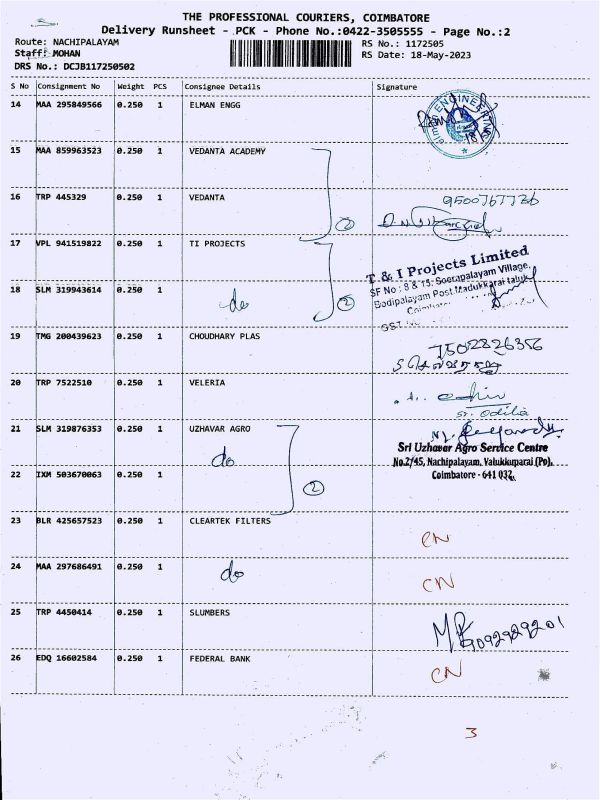 THE PROFESSIONAL COURIERS, COIMBATORE
Delivery Runsheet - PCK - Phone No.:0422-3505555 - Page No.:2
Route: NACHIPALAYAM RS No.: 1172505
Staff: MOHAN RS Date: 18-May-2023
DRS No.: DCJB117250502
S No Consignment No Weight PCS Consignee Details Signature
14 MAA 295849566 0.250 1 ELMAN ENGG
15 MAA 859963523 0.250 1 VEDANTA ACADEMY
16 TRP 445329 0.250 1 VEDANTA 9500767726
2
17 VPL 941519822 0.250 1 TI PROJECTS
T & I Projects Limited
SF No : 8 & 15, Seerapalayam Village,
18 SLM 319943614 0.250 1 do 2
Bodipalayam Post Madukkarai taluk,
GST No
19 TMG 200439623 0.250 1 CHOUDHARY PLAS 7502826356
20 TRP 7522510 0.250 1 VELERIA
21 SLM 319876353 0.250 1 UZHAVAR AGRO
do
Sri Uzhavar Agro Service Centre
No.2/45, Nachipalayam, Valukkuparai (Po),
22 IXM 503670063 0.250 1 2 Coimbatore - 641 032.
23 BLR 425657523 0.250 1 CLEARTEK FILTERS CN
24 MAA 297686491 0.250 1 do CN
25 TRP 4450414 0.250 1 SLUMBERS
26 EDQ 16602584 0.250 1 FEDERAL BANK CN
3